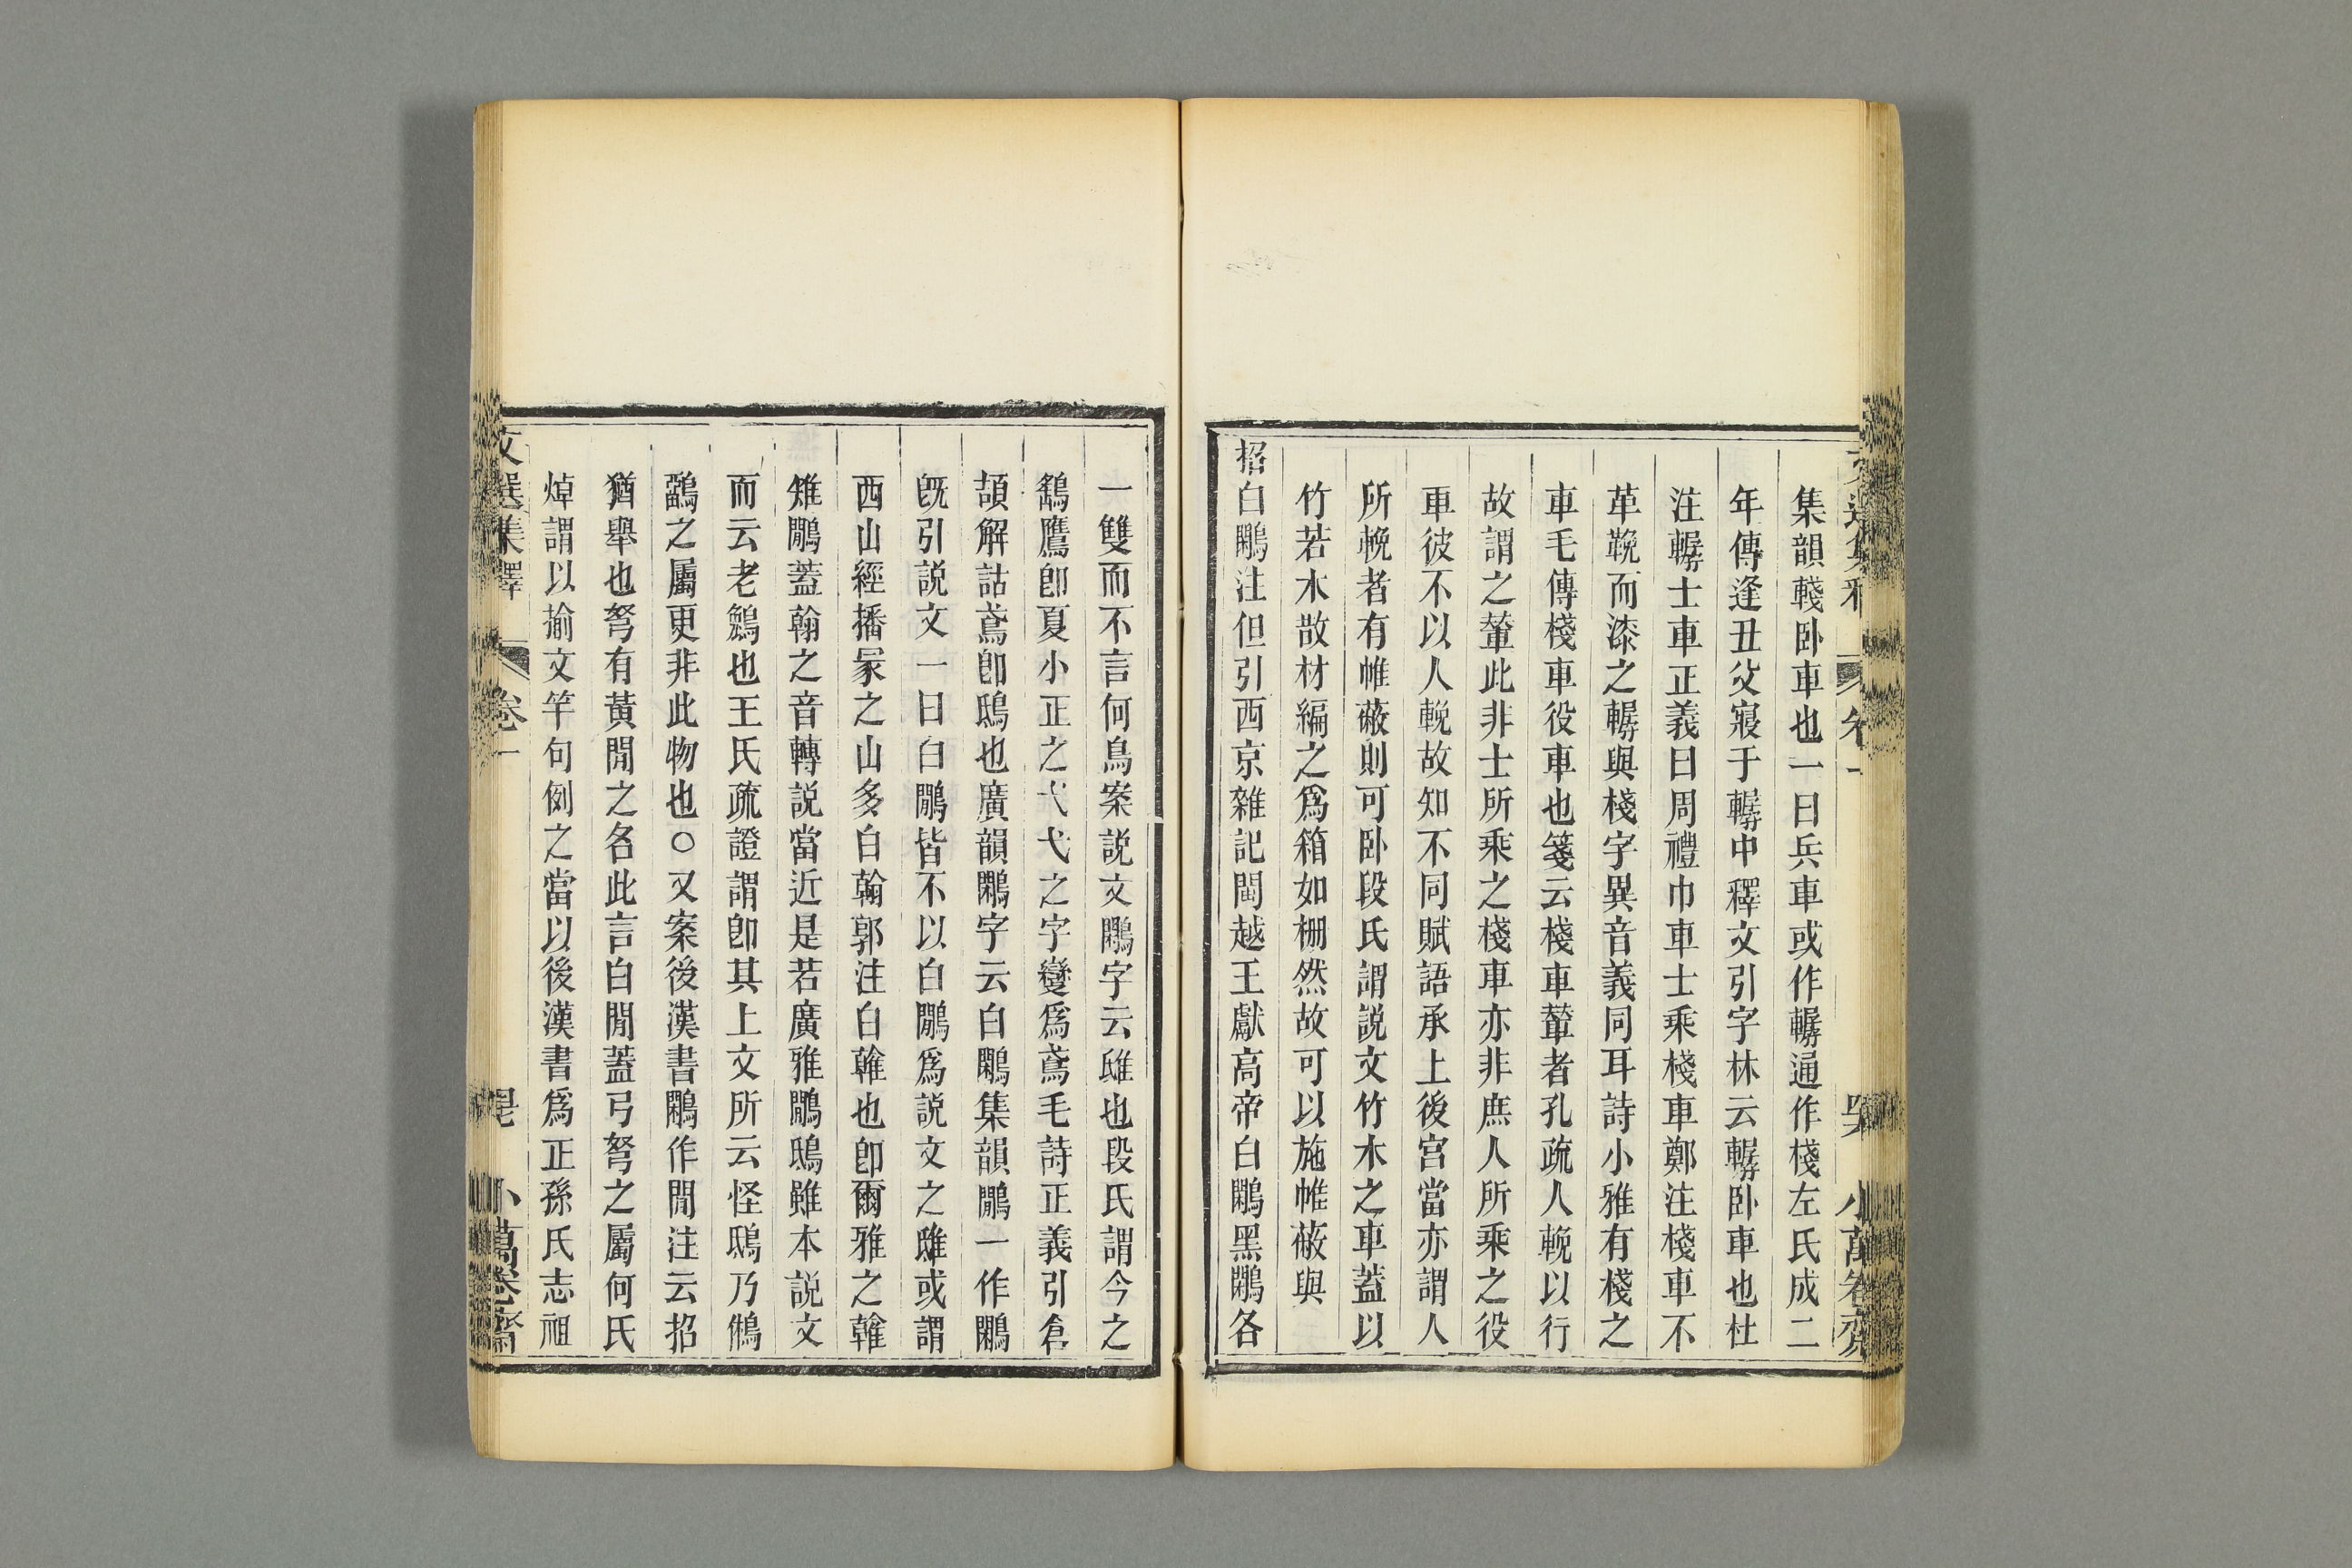 集韻輚卧車也一曰兵車或作轏通作棧左氏成二
年傳逢丑父寢于轏中釋文引字林云轏卧車也杜
注轏士車正義曰周禮巾車士乘棧車鄭注棧車不
革鞔而漆之轏與棧字異音義同耳詩小雅有棧之
車毛傳棧車役車也箋云棧車輦者孔疏人輓以行
故謂之輦此非士所乘之棧車亦非庶人所乘之役
車彼不以人輓故知不同賦語承上後宮當亦謂人
所輓者有帷蔽則可卧段氏謂説文竹木之車蓋以
竹若木散材編之爲箱如栅然故可以施帷蔽與
招白鷳注但引西京雜記閩越王獻高帝白鷳黑鷳各
一雙而不言何鳥案説文鷳字云鴟也段氏謂今之
鷂鷹卽夏小正之弋弋之字變爲鳶毛詩正義引倉
頡解詁鳶卽鴟也廣韻鷳字云白鷳集韻鷳一作鷳
旣引説文一曰白鷳皆不以白鷳爲説文之鴟或謂
西山經播冢之山多白翰郭注白鶾也卽爾雅之鶾
雉鷳蓋翰之音轉説當近是若廣雅鷳鴟雖本説文
而云老鵵也王氏疏證謂卽其上文所云怪鴟乃鵂
鶹之屬更非此物也〇又案後漢書鷳作閒注云招
猶舉也弩有黃閒之名此言白閒蓋弓弩之屬何氏
焯謂以揄文竿句例之當以後漢書爲正孫氏志祖
文選集釋 卷一 小萬卷齋